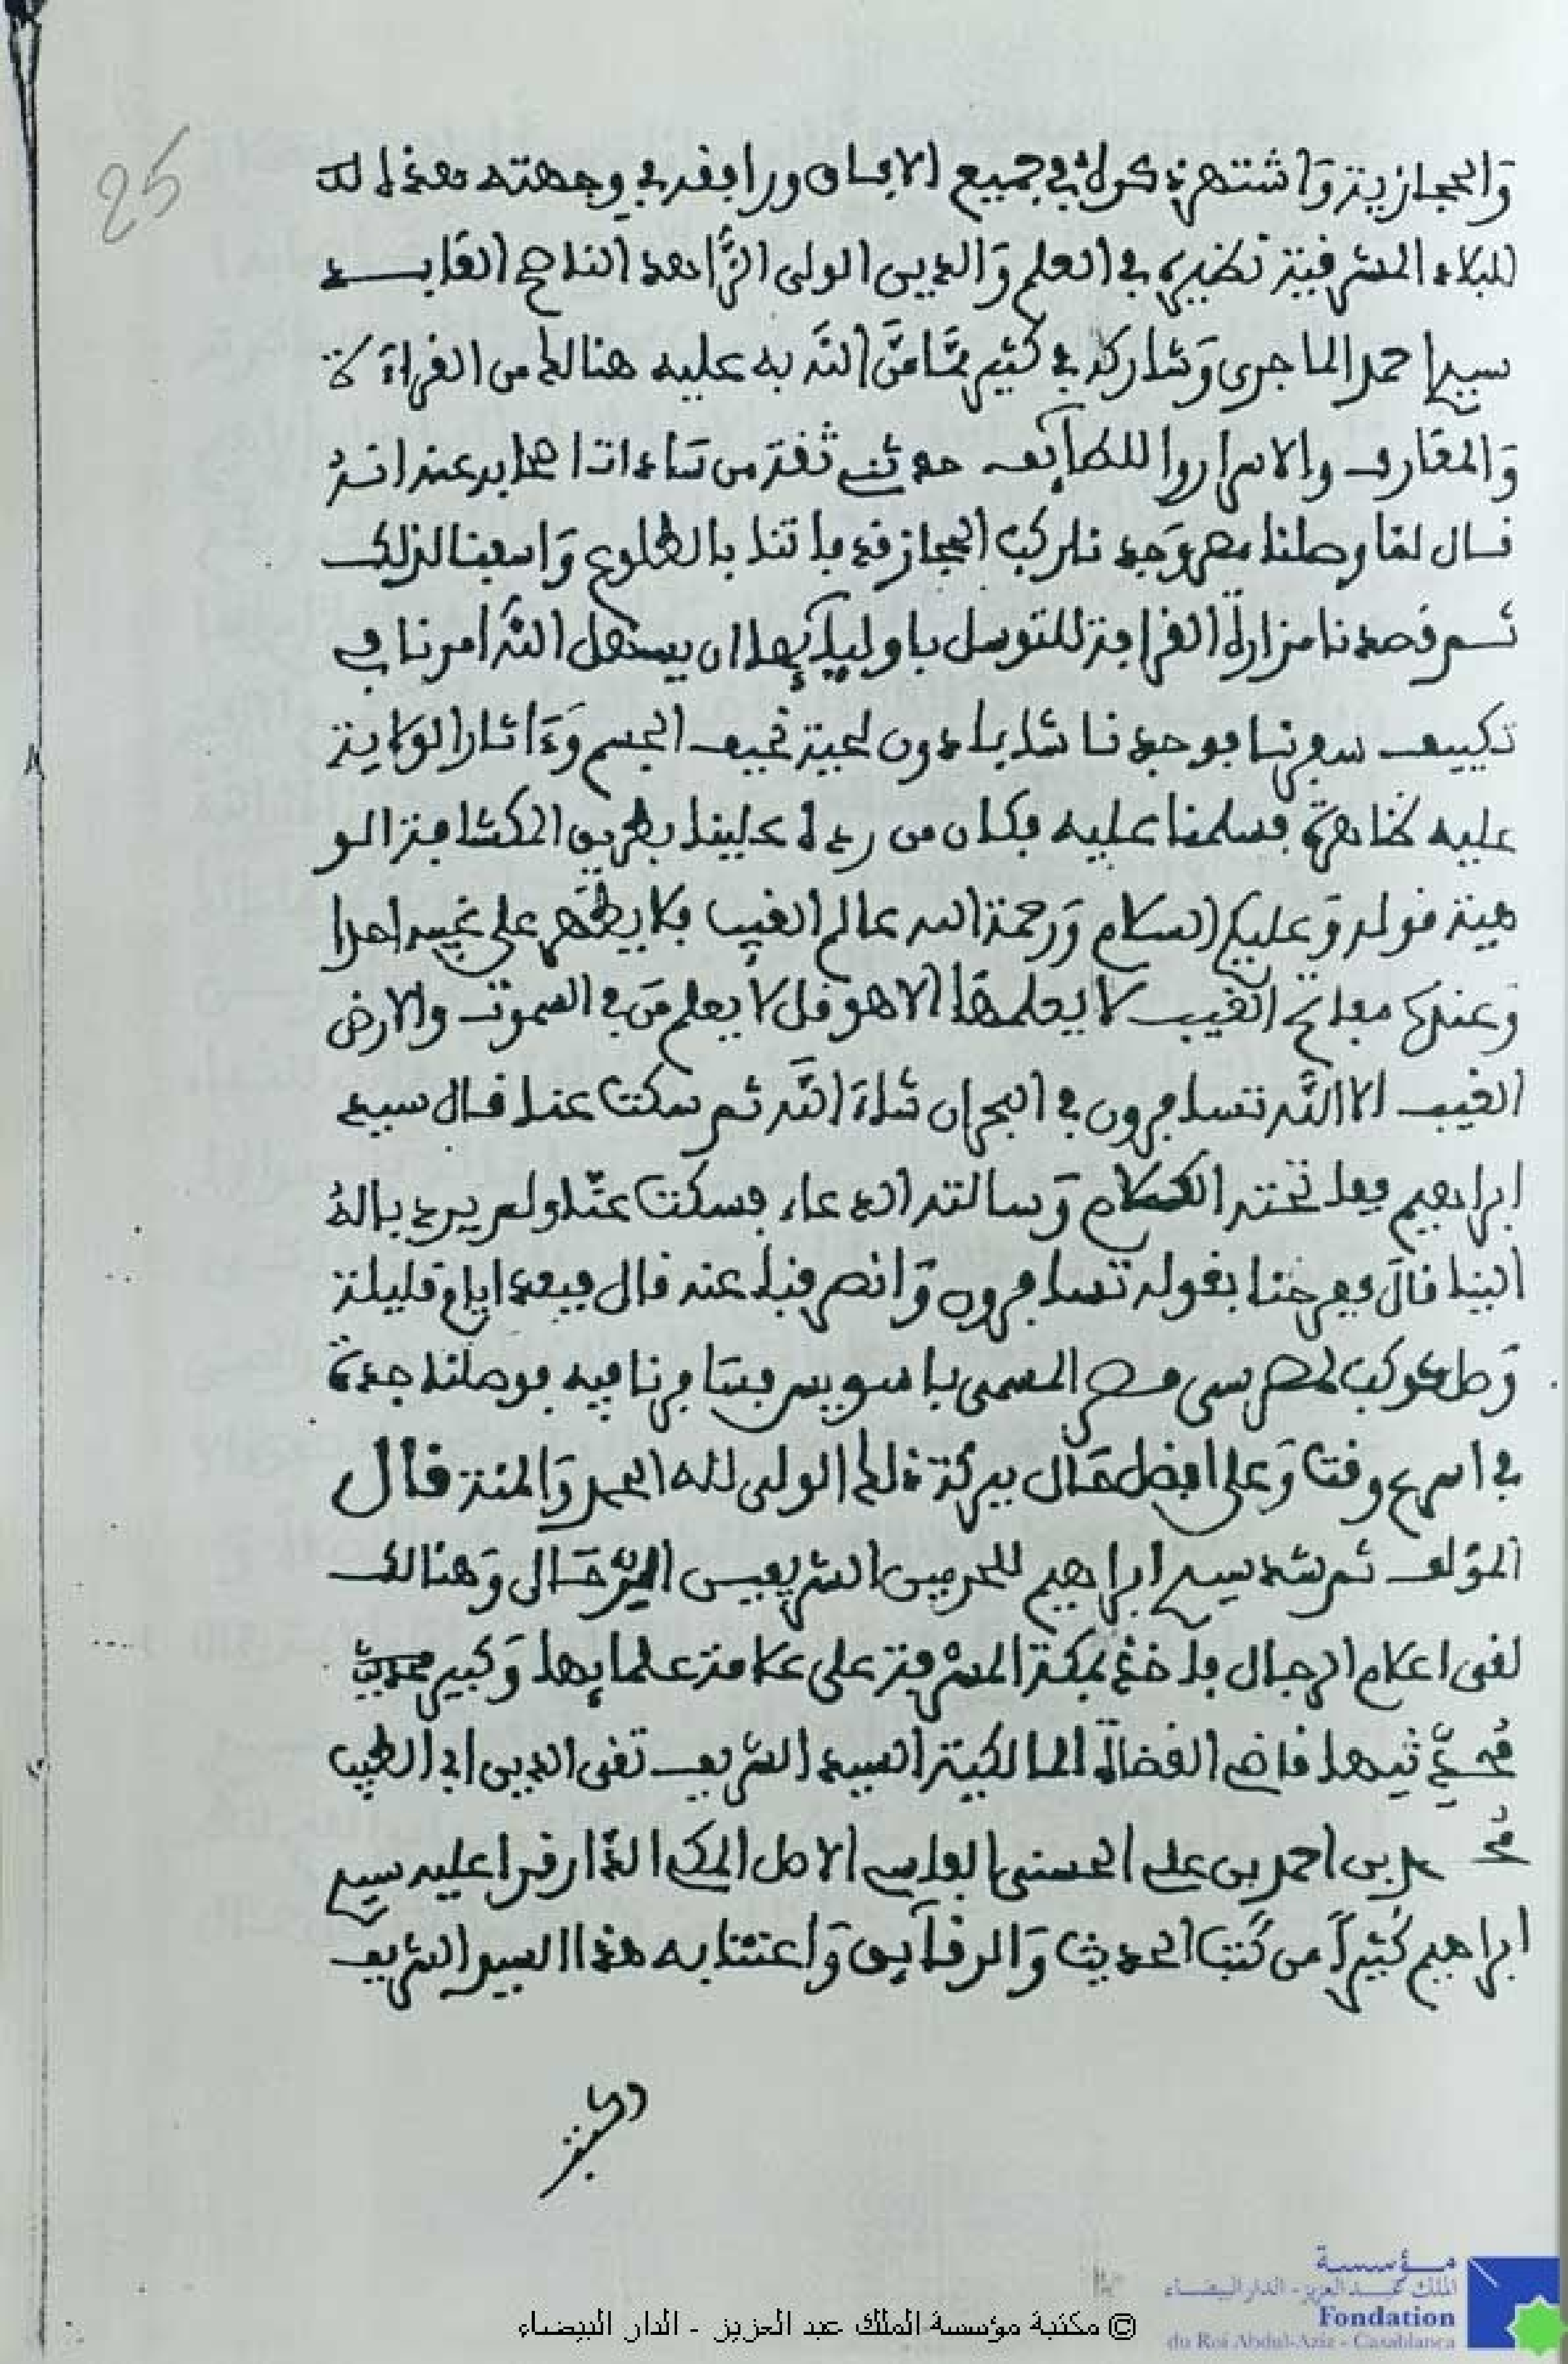 25
والحجازية واشتهر ذكره في جميع الافاق ورافقه في وجهته هذه الى
البلاد المشرقية نظيره في العلم والدين الولي الزاهد الناصح العابد
سيدي احمد الماجري وشاركه في كثير مما من الله به عليه هنالك من القراءة
والمعارف والاسرار واللطائف حدثني ثقة من ساداتنا اصحابه عنه انه
قال لما وصلنا مصر وجدنا ركب الحجاز قد فاتنا بالطلوع واسفنا لذلك
ثم قصدنا مزارة القرافة للتوسل باوليائها ان يسهل الله امرنا في
تكييف سفرنا فوجدنا شابا دون لحية نحيف الجسم وءاثار الولاية
عليه ظاهرة فسلمنا عليه فكان من رده علينا بطريق المكاشفة الو
هبية قوله وعليكم السلام ورحمة الله عالم الغيب فلا يظهر على غيبه احدا
وعنده مفاتح الغيب لا يعلمها الا هو قل لا يعلم من في السموت والارض
الغيب الا الله تسافرون في البحر ان شاء الله ثم سكت عنا قال سيدي
ابراهيم ففاتحته الكلام وسالته الدعاء فسكت عنا ولم يرد باله
الينا قال ففرحنا بقوله تسافرون وانصرفنا عنه قال فبعد ايام قليلة
وصل مركب لمرسى مصر المسمى باسويس فسافرنا فيه فوصلنا جدة
في اسرع وقت وعلى افضل حال ببركة ذلك الولي لله الحمد والمنة قال
المؤلف ثم شد سيدي ابراهيم للحرمين الشريفين الرحال وهنالك
لقي اعلام الرجال فاخذ بمكة المشرفة على علامة علمائها وكبير
محدثيها قاضي القضاة المالكية السيد الشريف تقي الدين ابي الطيب
محمد بن احمد بن علي الحسني الفاسي الاصل المكي الدار قرا عليه سيدي
ابراهيم كثيرا من كتب الحديث والرقائق واعتنا به هذا السيد الشريف
مؤسسة
الملك عبد العزيز - الدار البيضاء
Fondation
du Roi Abdul-Aziz - Casablanca
© مكتبة مؤسسة الملك عبد العزيز - الدار البيضاء